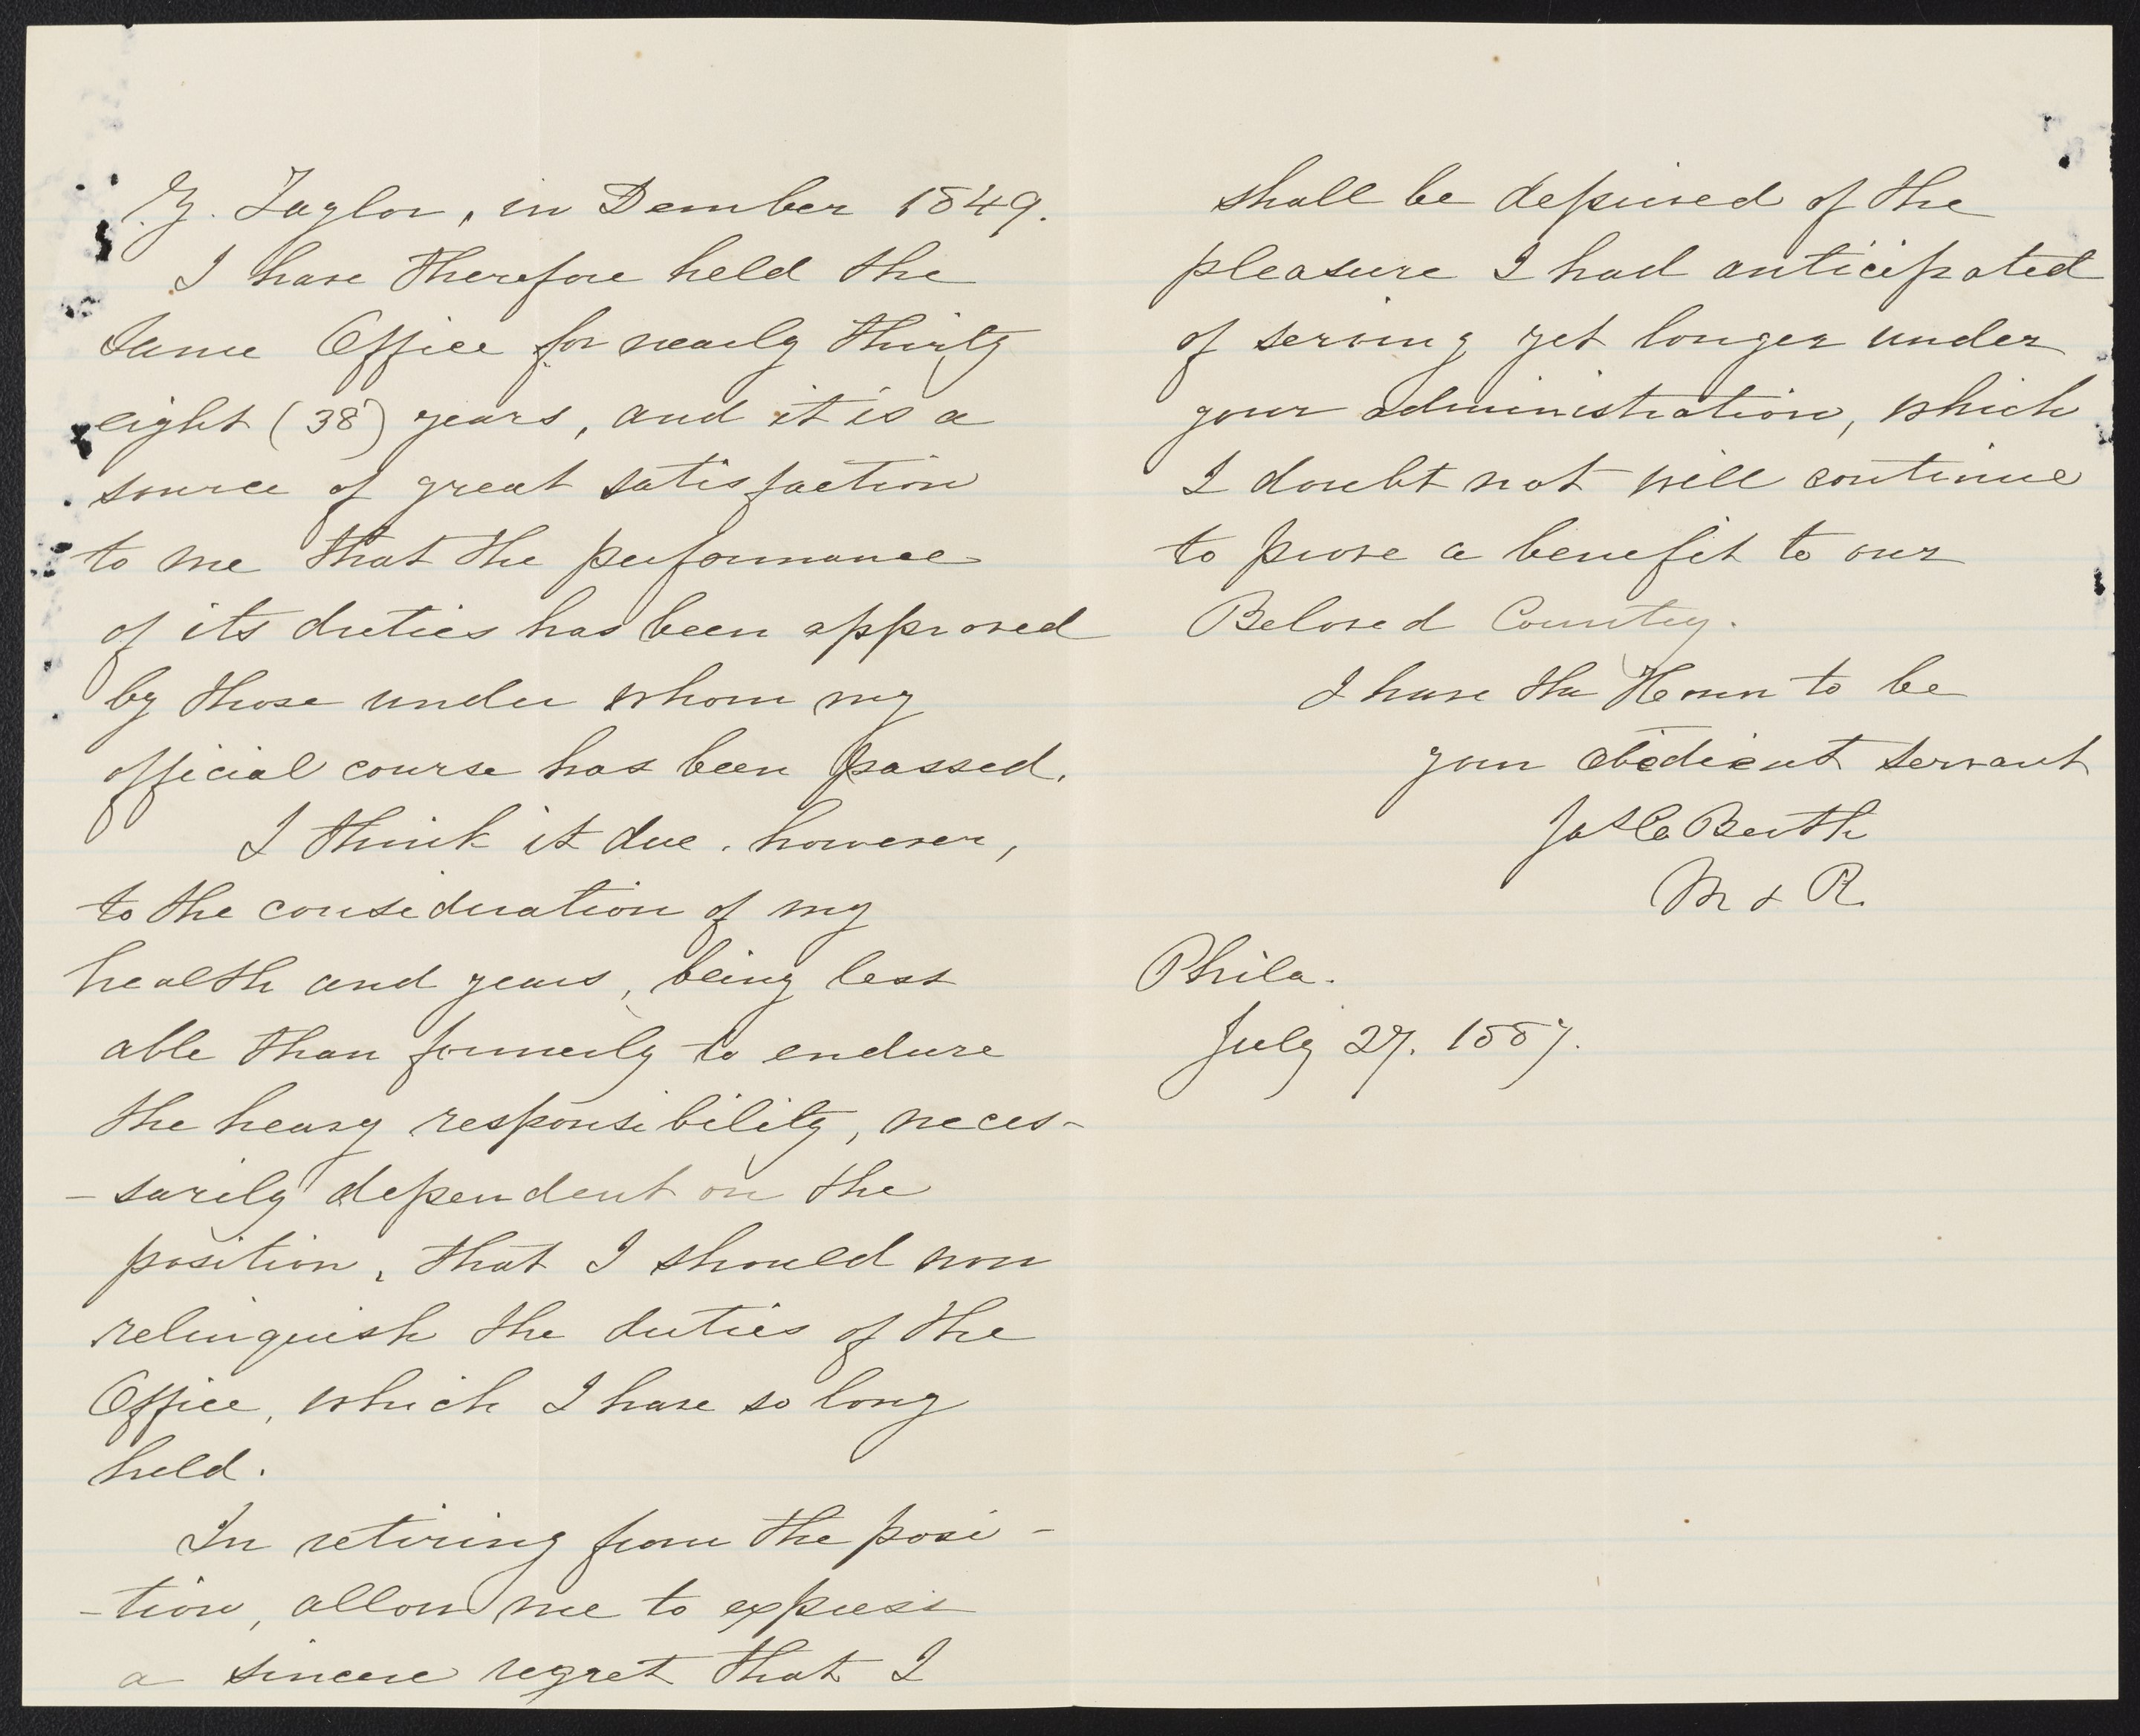 Z. Taylor, in Dember 1849.
I have therefore held the
Same Office for nearly thirty
eight (38) years, and it is a
source of great satisfaction
to me that the performance
of its duties has been approved
by those under whom my
official course has been passed.
I think it due, however,
to the consideration of my
health and years, being less
able than formerly to endure
the heavy responsibility, neces-
-sarily dependent on the
position, that I should now
relinquish the duties of the
Office, which I have so long
held.
In retiring from the posi-
-tion, allow me to express
a sincere regret that I
shall be deprived of the
pleasure I had anticipated
of serving yet longer under
your administration, which
I doubt not will continue
to prove a benefit to our
Beloved Country.
I have the Honor to be
your obedient servant
Jas C. Booth
M & R.
Phila.
July 27. 1887.